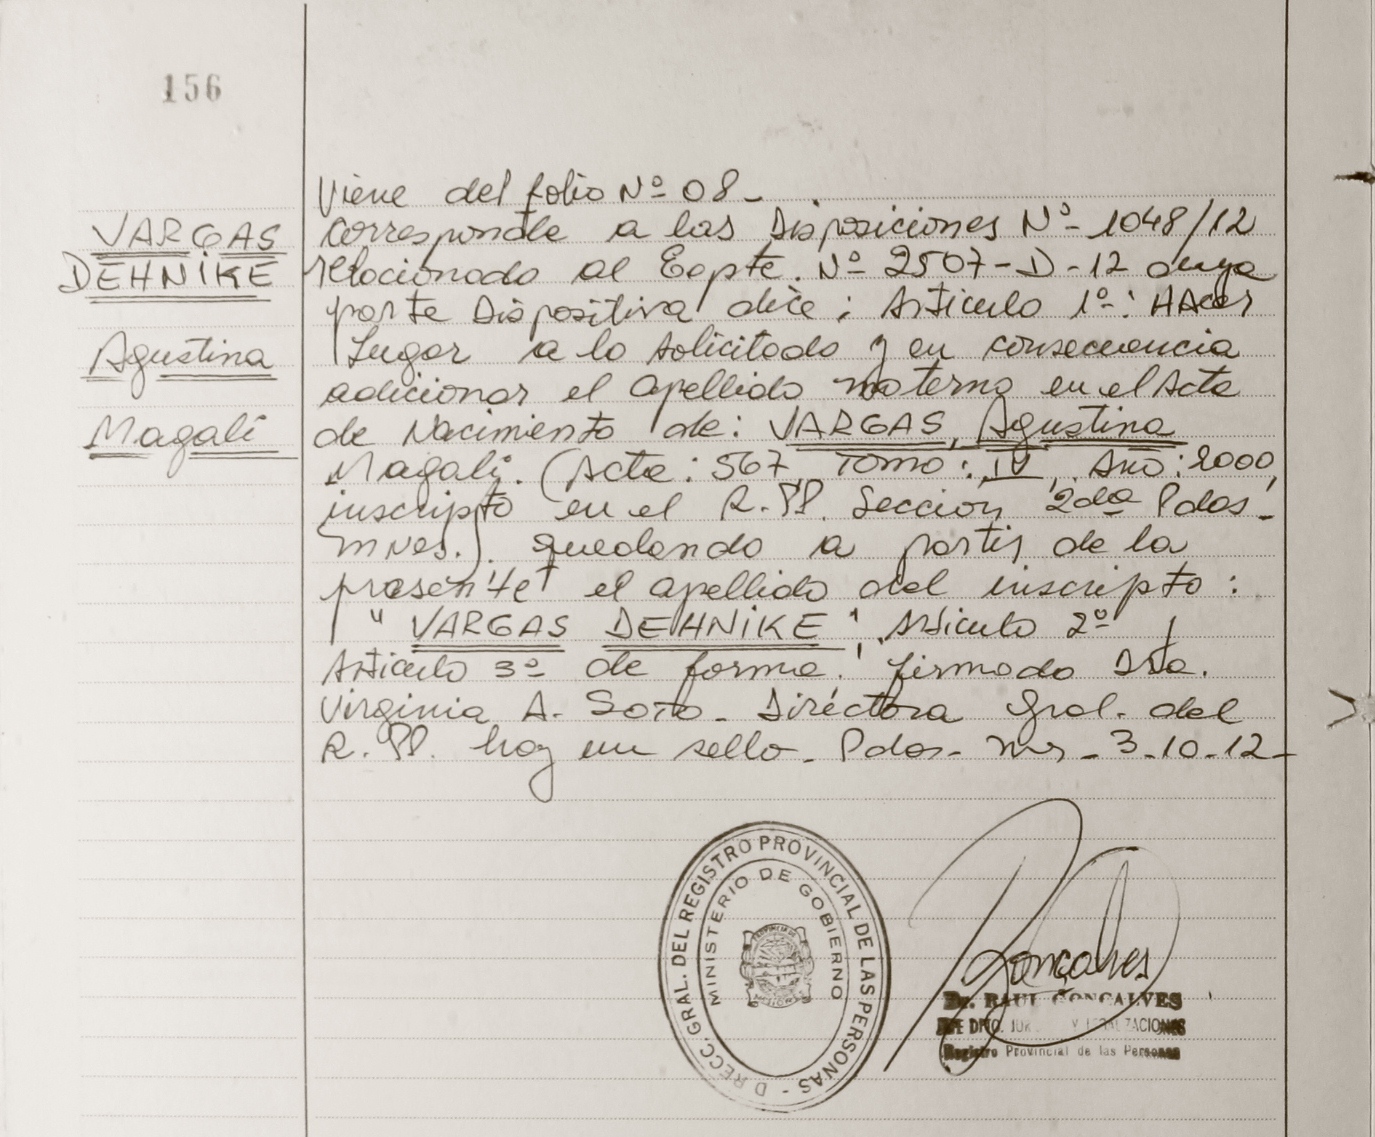 156
VARGAS
DEHNIKE
Agustina
Magali
Viene del folio Nº 08-
Corresponde a las Disposiciones Nº 1048/12
relacionado al Expte. Nº 2507-D-12 cuya
parte Dispositiva dice: Articulo 1º: HAcer
Lugar a lo solicitado y en consecuencia
adicionar el apellido materno en el Acta
de Nacimiento de: VARGAS, Agustina
Magali. (Acta: 567, Tomo: IV, Año: 2000,
inscripto en el R.PP. Seccion 2da Pdas-
mnes.). quedando a partir de la
presente el apellido del inscripto:
"VARGAS DEHNIKE", Articulo 2º y
Articulo 3º de forma. firmado Dra.
Virginia A. Soto- Directora Gral. del
R.PP. hay un sello- Pdas- Mns- 3-10-12-
DIRECC. GRAL. DEL REGISTRO PROVINCIAL DE LAS PERSONAS -
MINISTERIO DE GOBIERNO
Goncalves
Dr. RAUL GONCALVES
JEFE DPTO. Y LEGALIZACIONES
Registro Provincial de las Personas